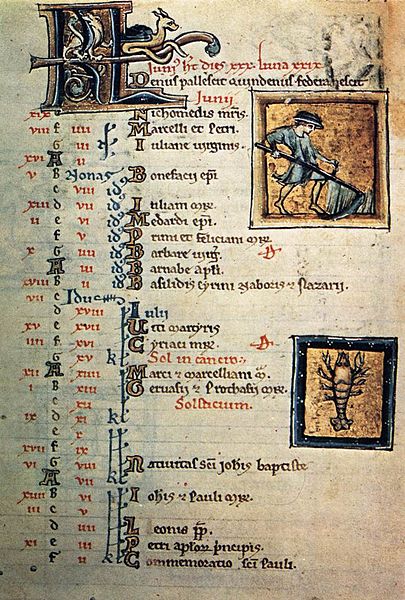 KL Iuni' ht dies xxx. luna xxix.
Denus pallescit quindenus federa nescit
Iunii
xix Nichomedis mris.
viii f iiii Marcelli et Petri.
G iii Iuliane virginis.
xvi A ii
v B Nonas Bonefacii epi
c viii id'
xiii d vii id' Iuliani mr.
ii e vi id' Medardi epi.
f v id' Primi et feliciani mr.
x G iiii id' Barbare virg.
A iii id' Barnabe apli.
xviii B ii id' Basilidis Cyrini Naboris & Nazarii.
vii c Idus
d xviii Iulii
xv e xvii Uiti martyris
iiii f xvi Cyriaci mr.
G xv kł Sol in cancro.
xii A xiiii Marci & marcelliani m.
i B xiii Geruasii & Prothasii mr.
c xii Solsticium.
ix d xi kł
e x
xvii f ix
vi G viii Natiuitas sci iohis baptiste
A vii kł
xiiii B vi Iohis & Pauli mr.
iii c v
d iiii Leonis pp.
xi e iii Petri aplor principis.
f ii kł Commemoratio sci Pauli.